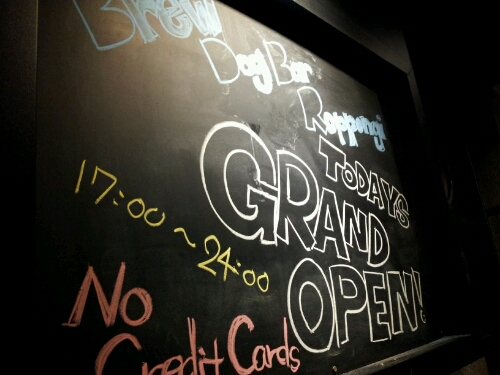 Brew
Dog Bar
Roppongi
TODAYS
GRAND
OPEN!
17:00~24:00
No
Credit Cards